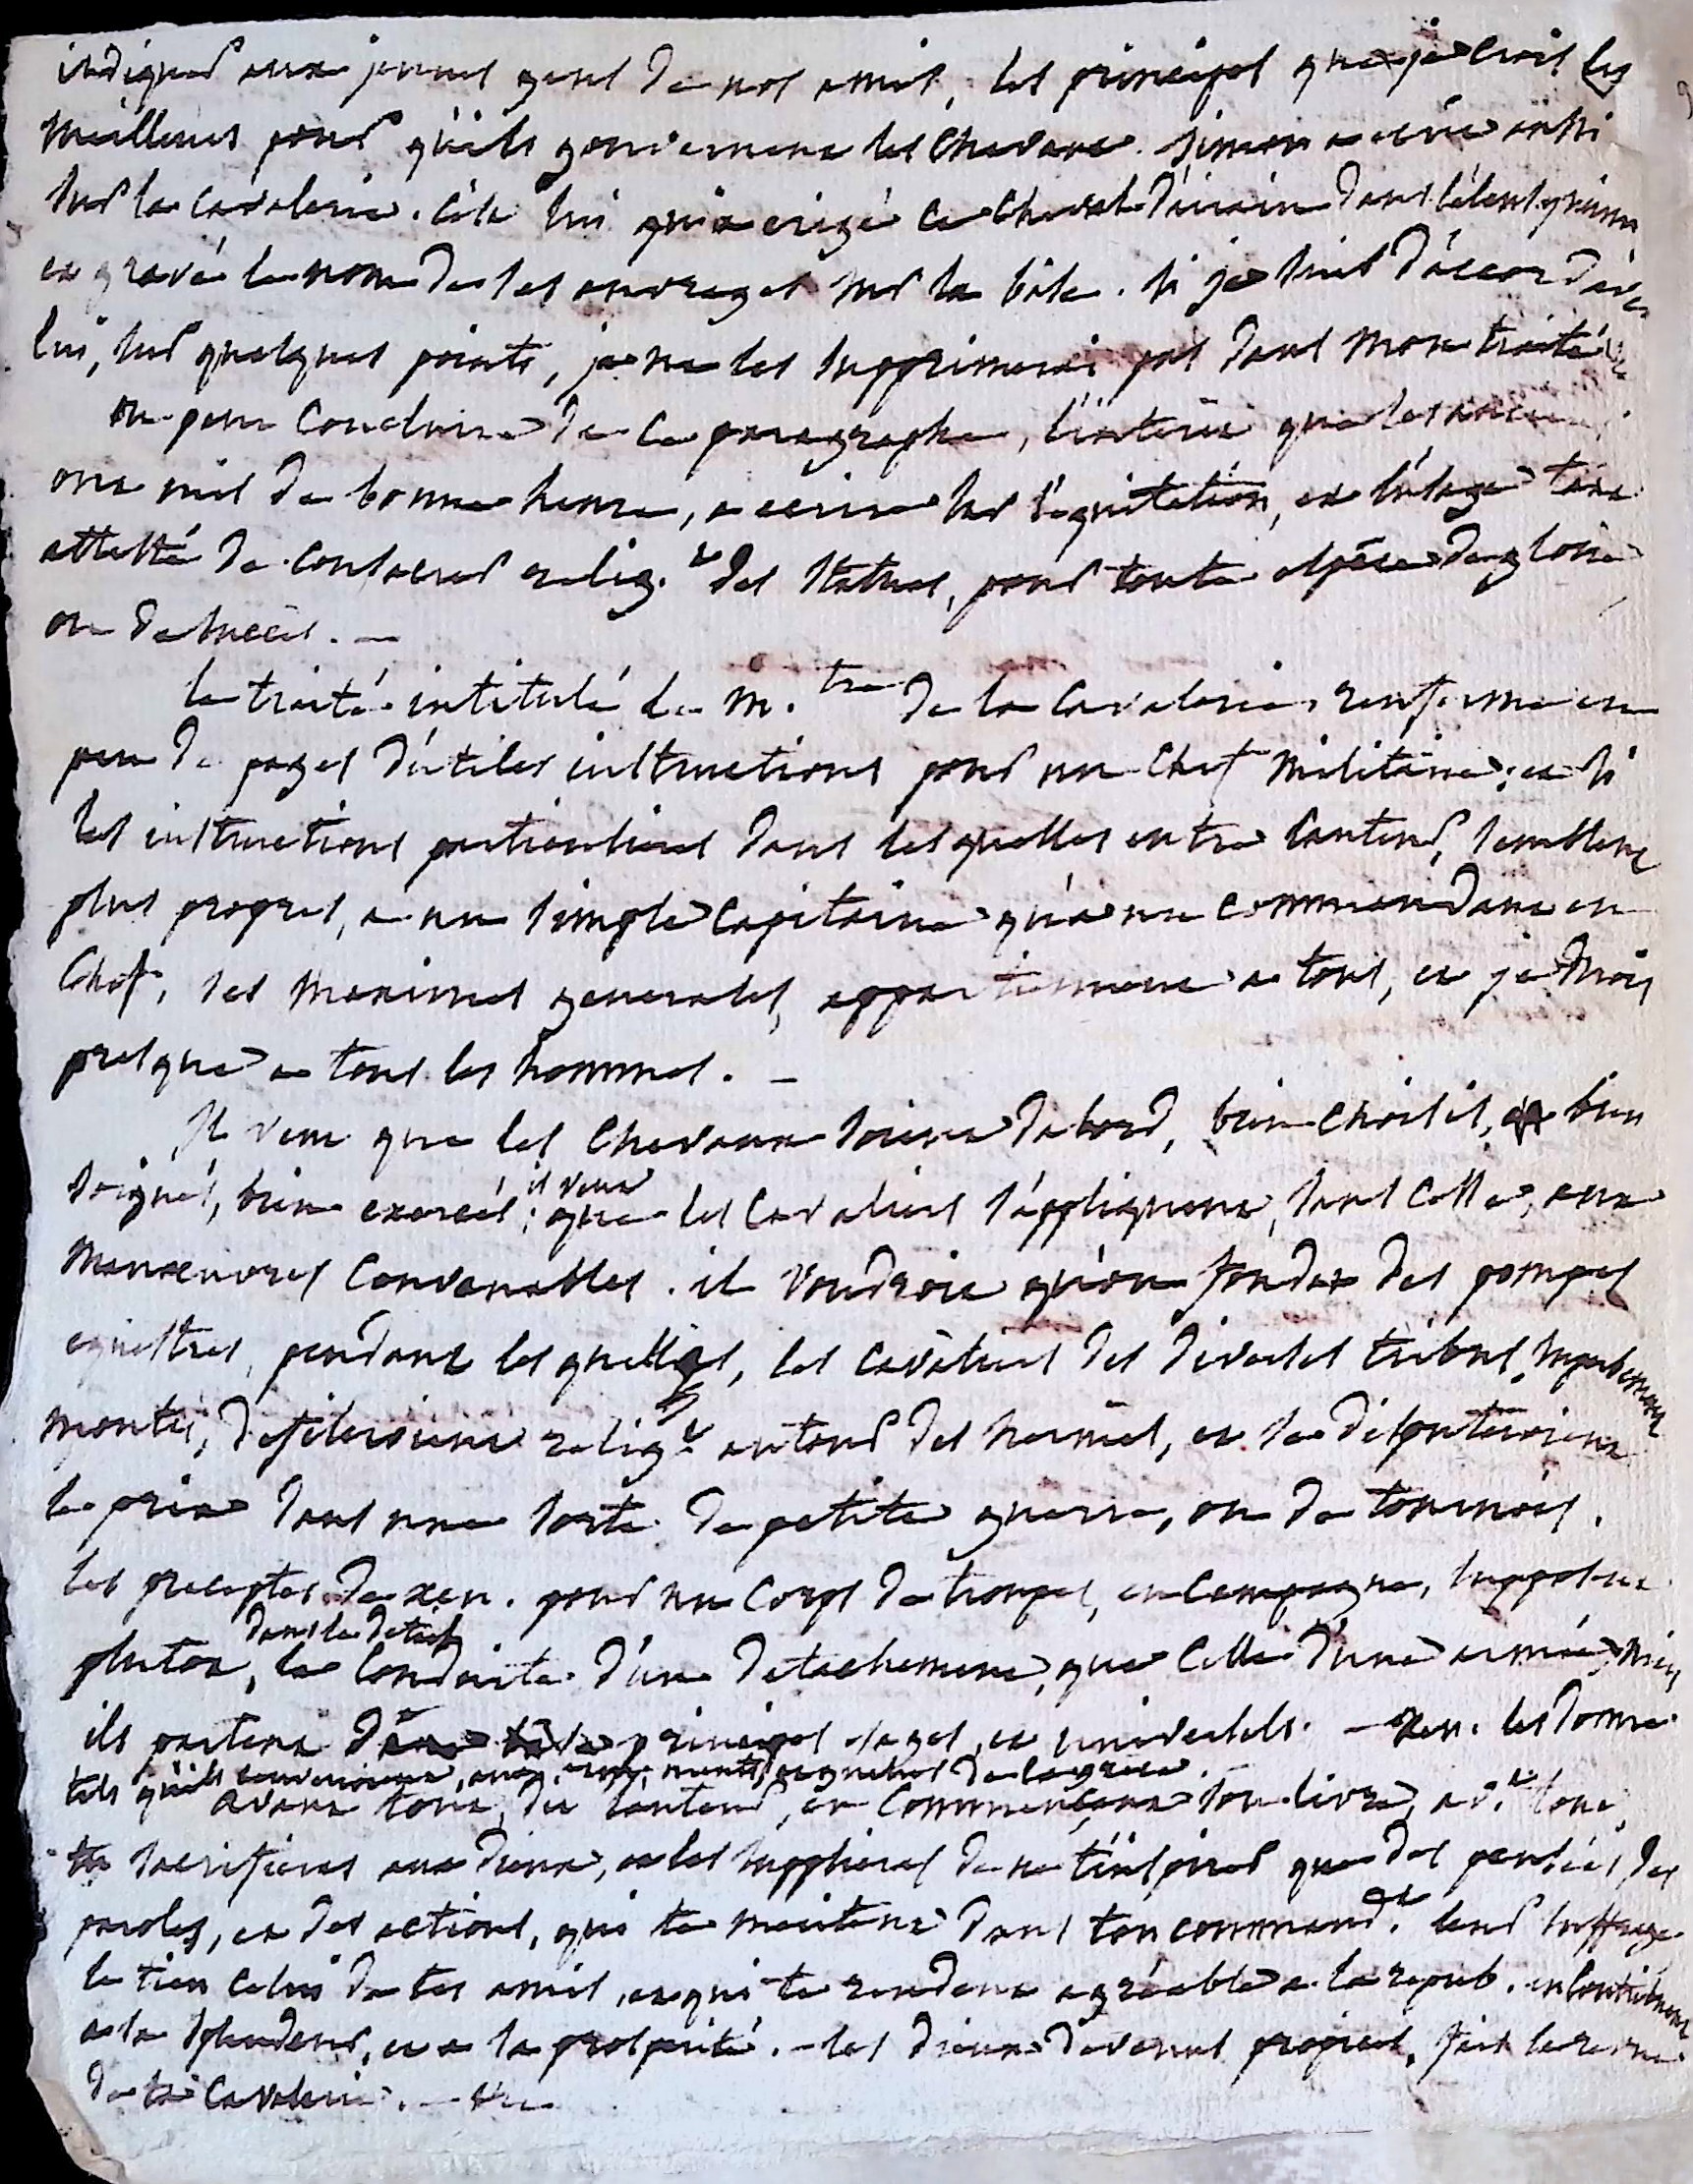 indiquer aux jeunes gens de nos amis, les principes que je crois les
meilleurs pour qu'ils gouvernent les chevaux. Simon a écrit aussi
sur la cavalerie. c'est lui qui a erigé ce cheval d'airain dans
et gravé le nom de ses ouvrages sur la base. si je suis d'accord avec
lui, sur quelques points, je ne les supprimerai pas dans mon traité
on peut conclure de ce paragraphe, l'interêt que les anciens
ont mis de bonne heure, a ecrire sur l'equitation, et l'usage tant
attesté de consacrer relig.t des statues, pour toute espèce de gloire
ou de succès. —
le traité intitulé le m.tre de la cavalerie, renferme en
peu de pages d'utiles instructions pour un chef militaire; et si
les instructions particulieres dans lesquelles entre l'auteur, semblent
plus propres, a un simple capitaine qu'a un commandant en
chef, ses maximes generales, appartiennent a tous, et je crois
presque a tous les hommes. —
Il veut que les chevaux soient dabord, bien choisis, bien
soignés, bien exercés; il veut que les cavaliers s'appliquent, sans cesse, aux
manœuvres convenables. il voudroit qu'on fondat des pompes
equestres, pendant lesquelles, les cavaliers des diverses tribus, superbement
montés, defileroient relig.t autour des hermès, et se disputeroient
le prix dans une sorte de petite guerre, ou de tournois.
les preceptes de xen. pour un corps de troupes, en campagne, supposent
plutot, dans le detail la conduite d'un detachement, que celle d'une armée, mais
ils partent de principes sages, et universels. — xen. les donne
tels qu'ils
avant tout, dit l'auteur, en commençant son livre, av.t tout,
tu sacrifieras aux dieux, et les supplieras de ne t'inspirer que des pensées, des
paroles, et des actions, qui te meritent dans ton command.t leur suffrage
le tien celui de tes amis, et qui te rendent agréable a la repub. en contribuant
a sa splendeur, et a sa prosperité. — les dieux devenus propices, fais la revue
de ta cavalerie. —